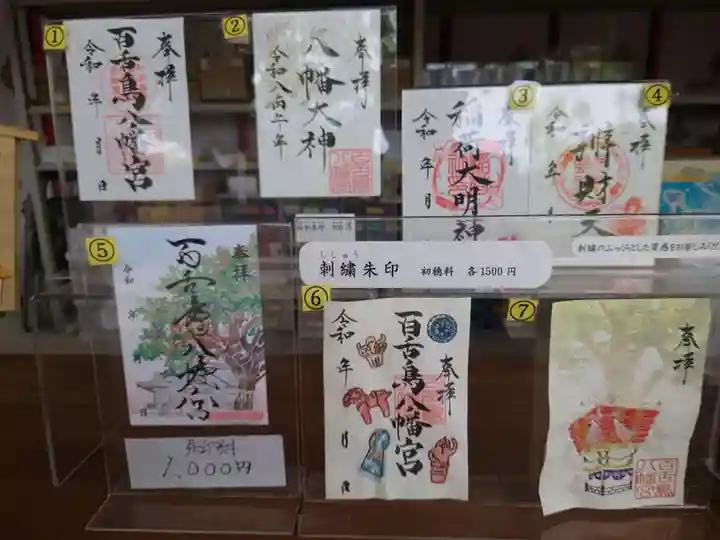 ①
奉拝
百舌鳥八幡宮
令和 年 月 日
②
奉拝
八幡大神
③
奉拝
稲荷大明神
令和 年 月
④
奉拝
財天
令和
⑤
奉拝
百舌鳥八幡宮
令和 年 日
1,000円
ししゅう
刺繍朱印 初穂料 各1500円
刺繍のふっくらとした質感をお楽しみくだ
⑥
奉拝
百舌鳥八幡宮
令和 年 月 日
⑦
奉拝
百舌鳥
八幡宮